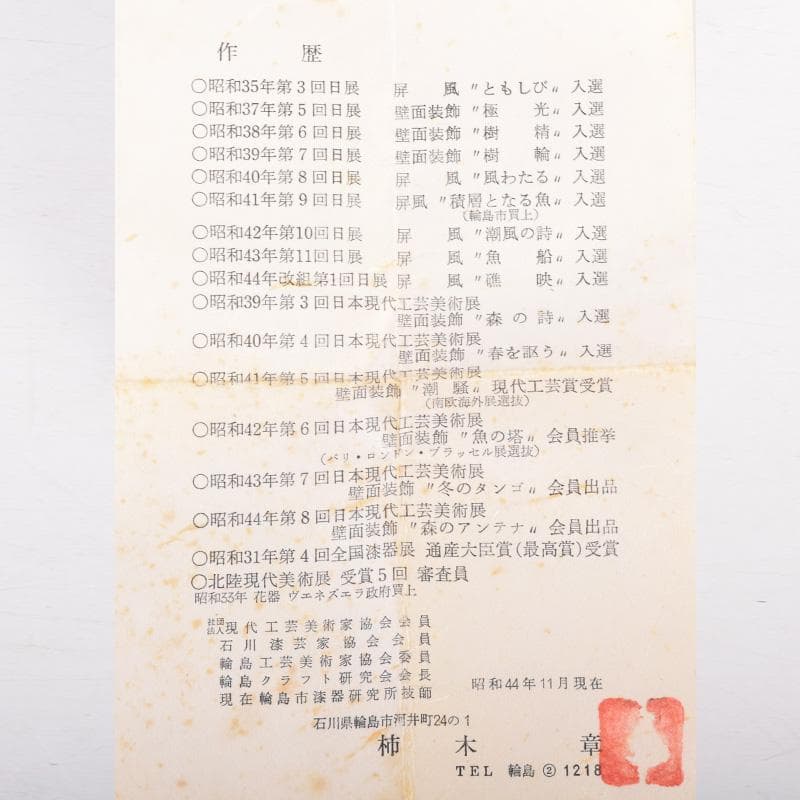 作　歴
○昭和35年第3回日展　屏　風〃ともしび〃入選
○昭和37年第5回日展　壁面装飾〃極　光〃入選
○昭和38年第6回日展　壁面装飾〃樹　精〃入選
○昭和39年第7回日展　壁面装飾〃樹　輪〃入選
○昭和40年第8回日展　屏　風〃風わたる〃入選
○昭和41年第9回日展　屏風〃積層となる魚〃入選
（輪島市買上）
○昭和42年第10回日展　屏　風〃潮風の詩〃入選
○昭和43年第11回日展　屏　風〃魚　船〃入選
○昭和44年改組第1回日展　屏　風〃礁　映〃入選
○昭和39年第3回日本現代工芸美術展
壁面装飾〃森の詩〃入選
○昭和40年第4回日本現代工芸美術展
壁面装飾〃春を謳う〃入選
○昭和41年第5回日本現代工芸美術展
壁面装飾〃潮　騒〃現代工芸賞受賞
（南欧海外展選抜）
○昭和42年第6回日本現代工芸美術展
壁面装飾〃魚の塔〃会員推挙
（パリ・ロンドン・ブラッセル展選抜）
○昭和43年第7回日本現代工芸美術展
壁面装飾〃冬のタンゴ〃会員出品
○昭和44年第8回日本現代工芸美術展
壁面装飾〃森のアンテナ〃会員出品
○昭和31年第4回全国漆器展　通産大臣賞（最高賞）受賞
○北陸現代美術展　受賞5回　審査員
昭和33年　花器　ヴエネズエラ政府買上
社団法人現代工芸美術家協会会員
石川漆芸家協会会員
輪島工芸美術家協会委員
輪島クラフト研究会会長
現在輪島市漆器研究所技師
昭和44年11月現在
石川県輪島市河井町24の1
柿　木　章
TEL　輪島　②　1218